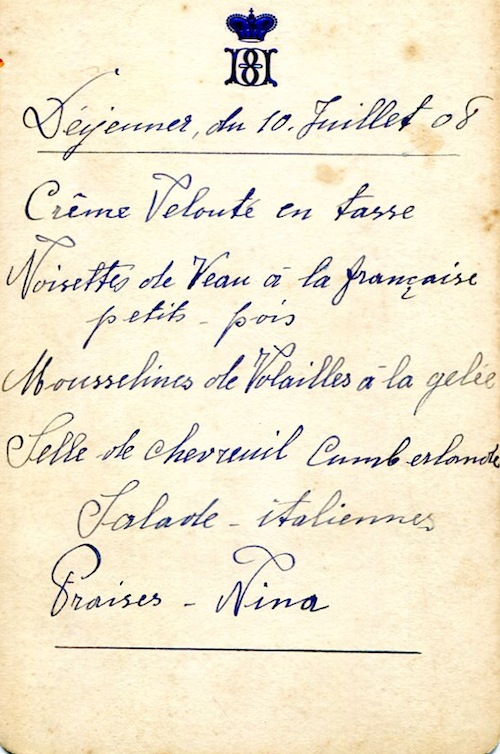 Déjeuner, du 10. Juillet 08
Crême Velouté en tasse
Noisettes de Veau à la française
petits - pois
Mousselines de Volailles à la gelée
Selle de chevreuil Cumberlande
Salade - italiennes
Fraises - Nina